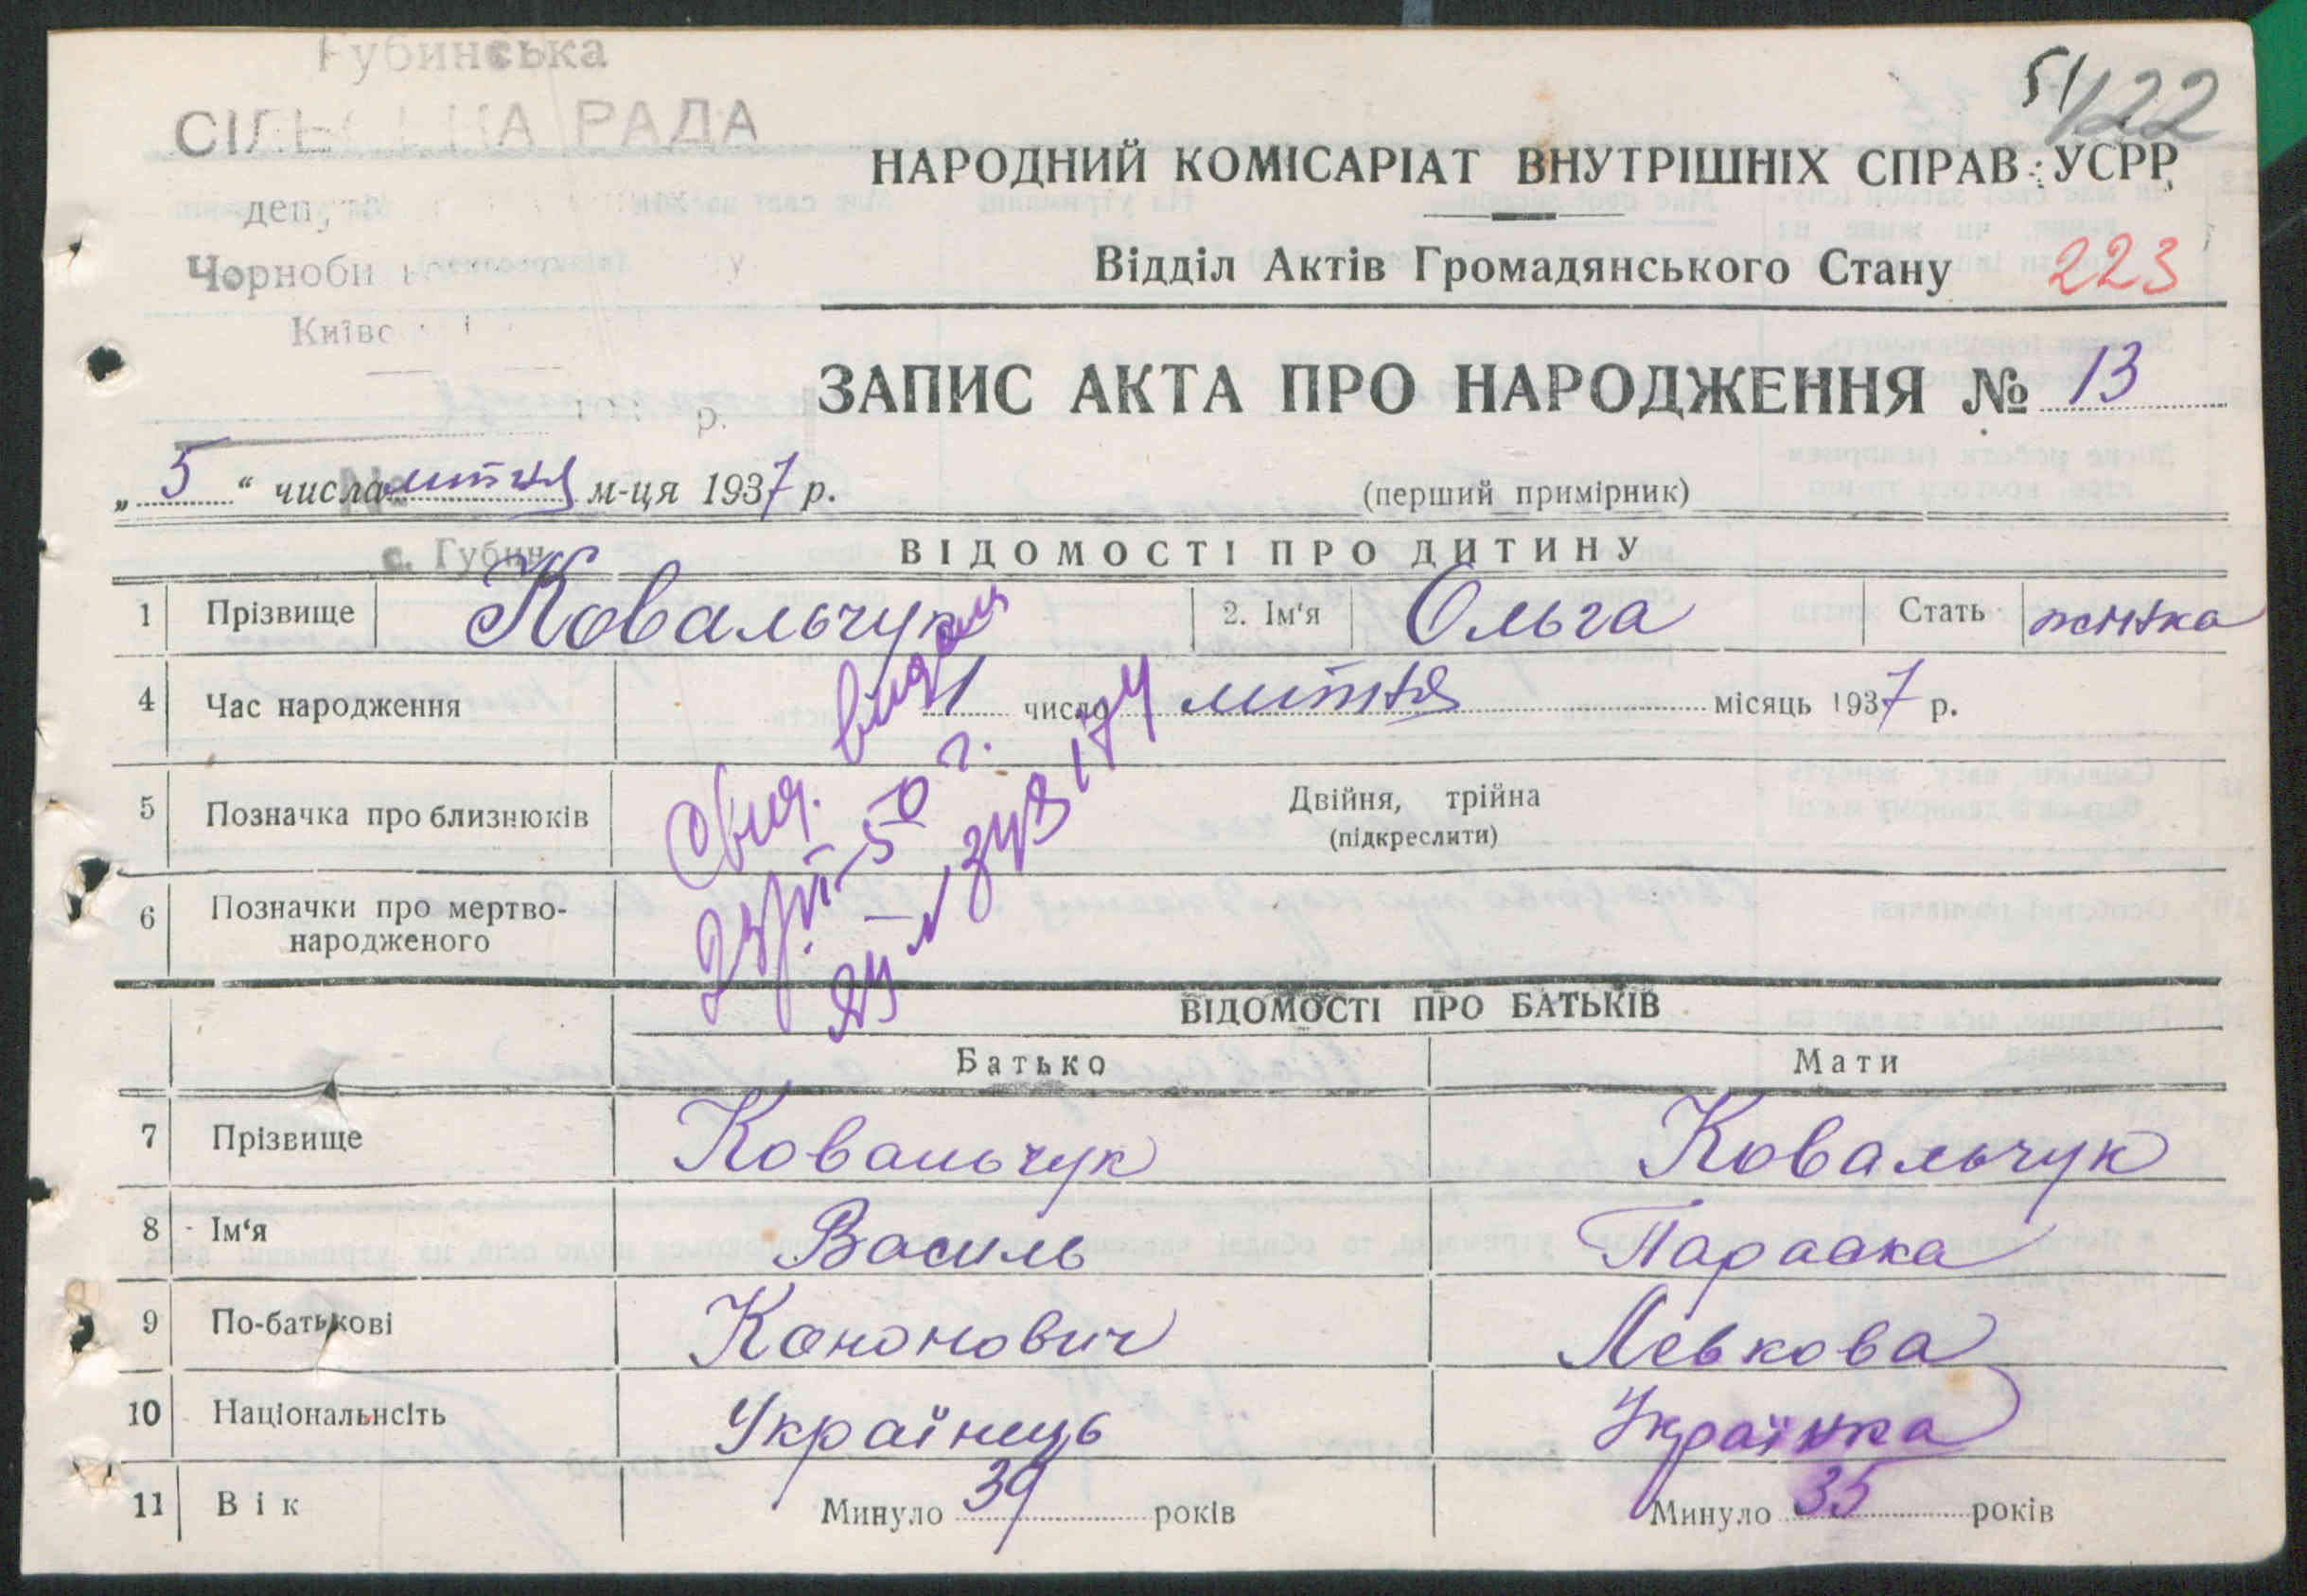 Губинська
СІЛЬСЬКА РАДА
51/122
НАРОДНИЙ КОМІСАРІАТ ВНУТРІШНІХ СПРАВ УСРР
Чорноби
Відділ Актів Громадянського Стану 223
Київс
ЗАПИС АКТА ПРО НАРОДЖЕННЯ № 13
р.
„5“ числа лютня м-ця 1937 р. (перший примірник)
№
с. Губин
ВІДОМОСТІ ПРО ДИТИНУ
1 Прізвище Ковальчук 2. Ім'я Ольга Стать жінка
4 Час народження 1 число лютня місяць 1937 р.
5 Позначка про близнюків Двійня, трійна
(підкреслити)
6 Позначки про мертво-
народженого
ВІДОМОСТІ ПРО БАТЬКІВ
Батько Мати
7 Прізвище Ковальчук Ковальчук
8 Ім'я Василь Параска
9 По-батькові Кононович Левкова
10 Національнсіть Українець Українка
11 Вік Минуло 39 років Минуло 35 років